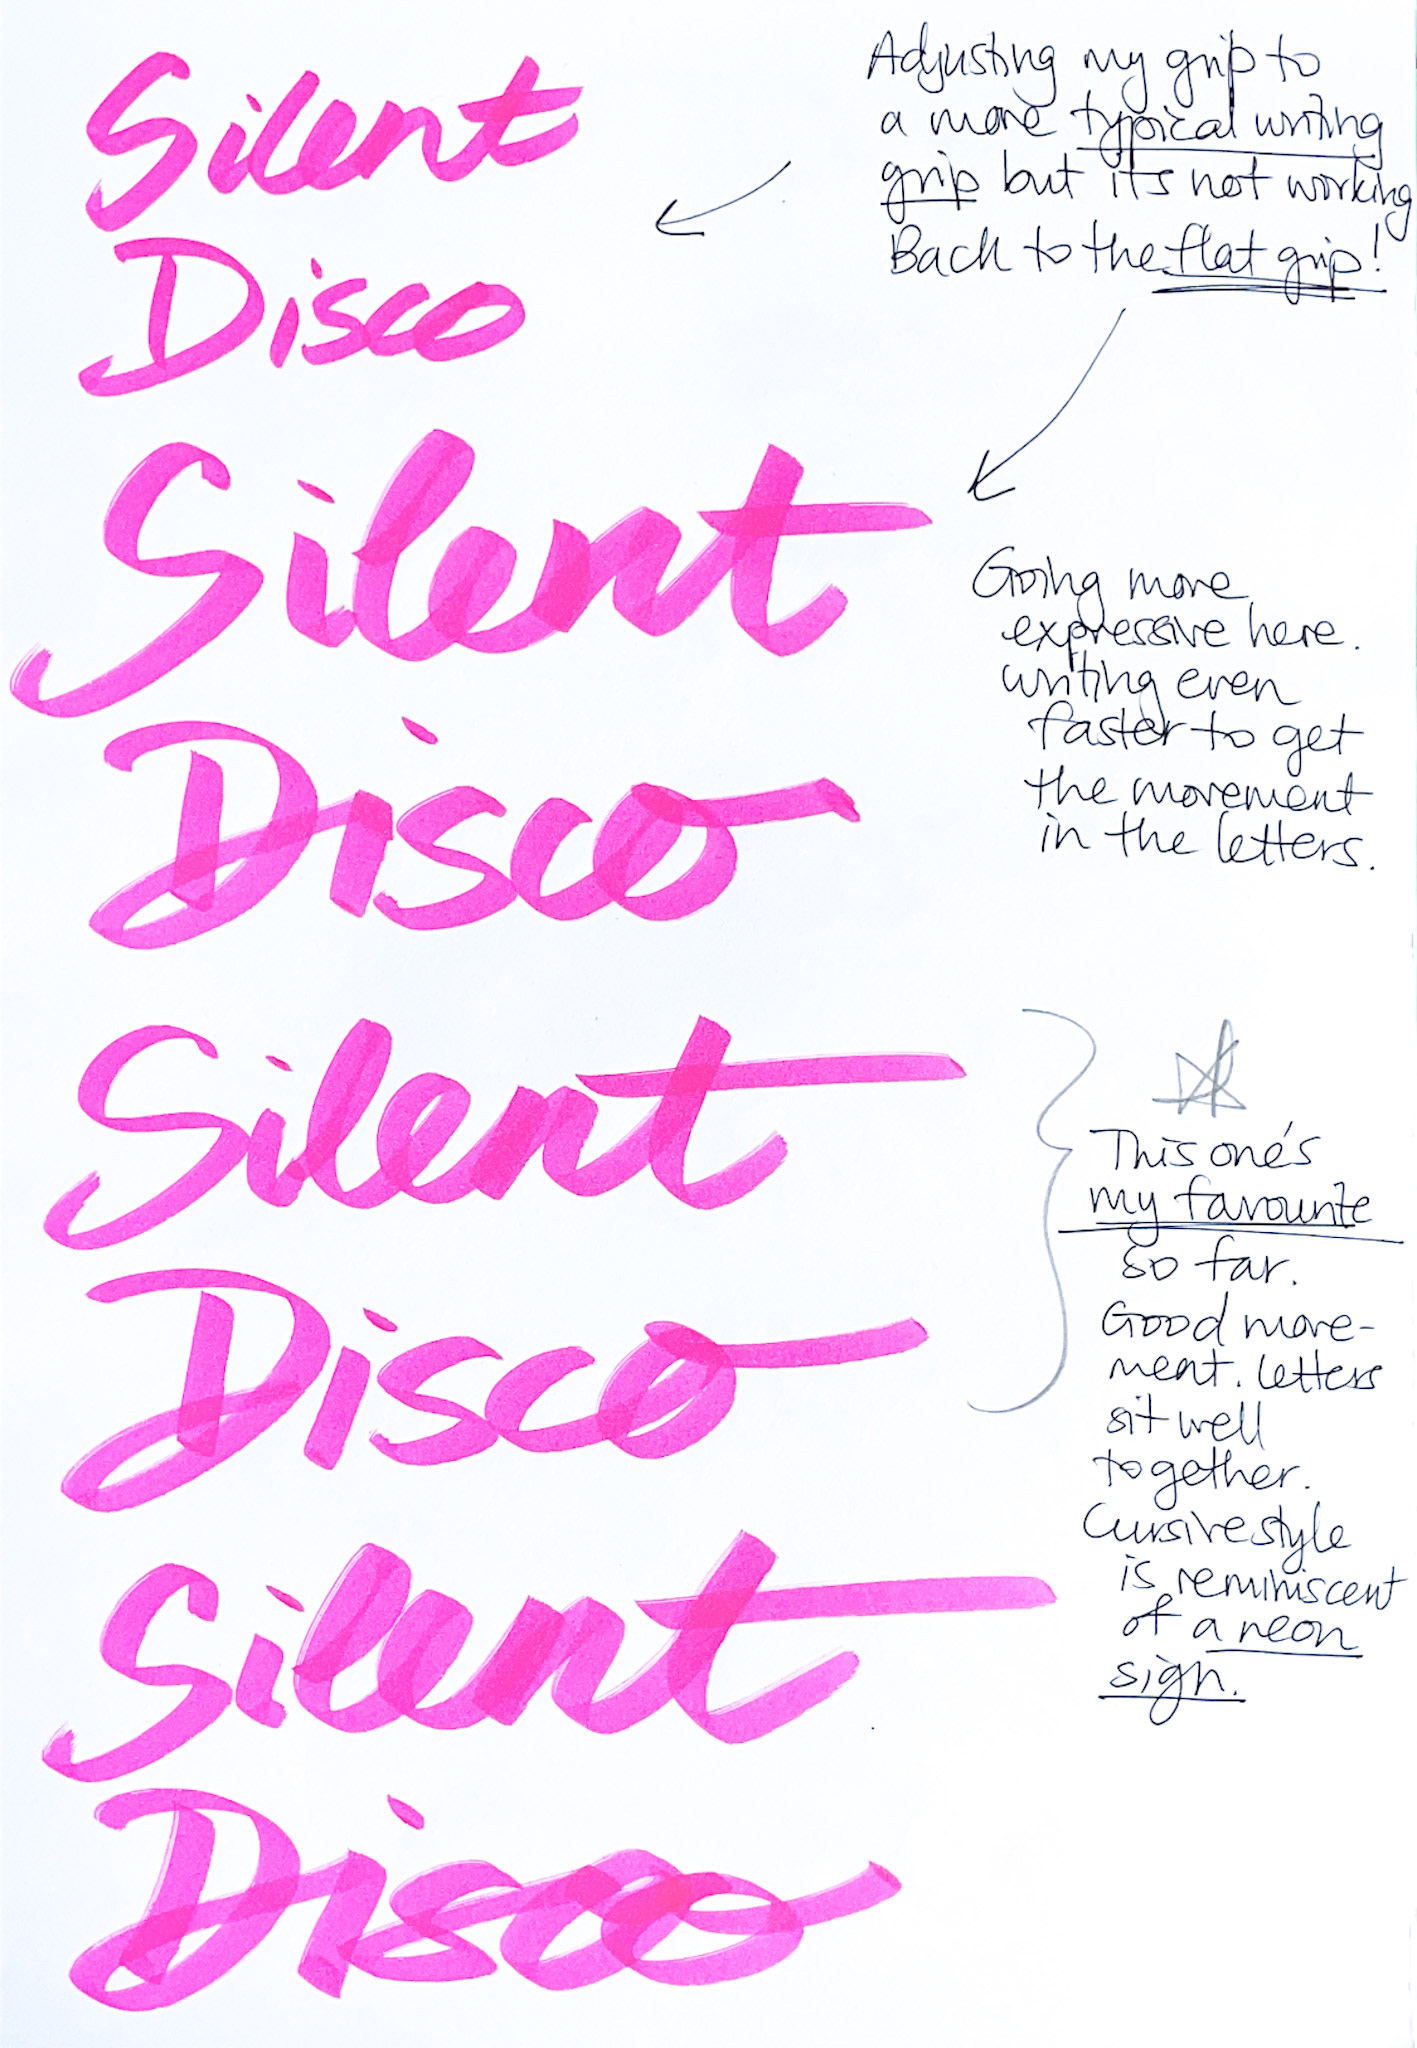 Silent
Disco
Adjusting my grip to
a more typical writing
grip but it's not working
Back to the flat grip!
Silent
Disco
Going more
expressive here.
writing even
faster to get
the movement
in the letters.
Silent
Disco
This one's
my favourite
so far.
Good move-
ment. letters
sit well
together.
Cursive style
is reminiscent
of a neon
sign.
Silent
Disco